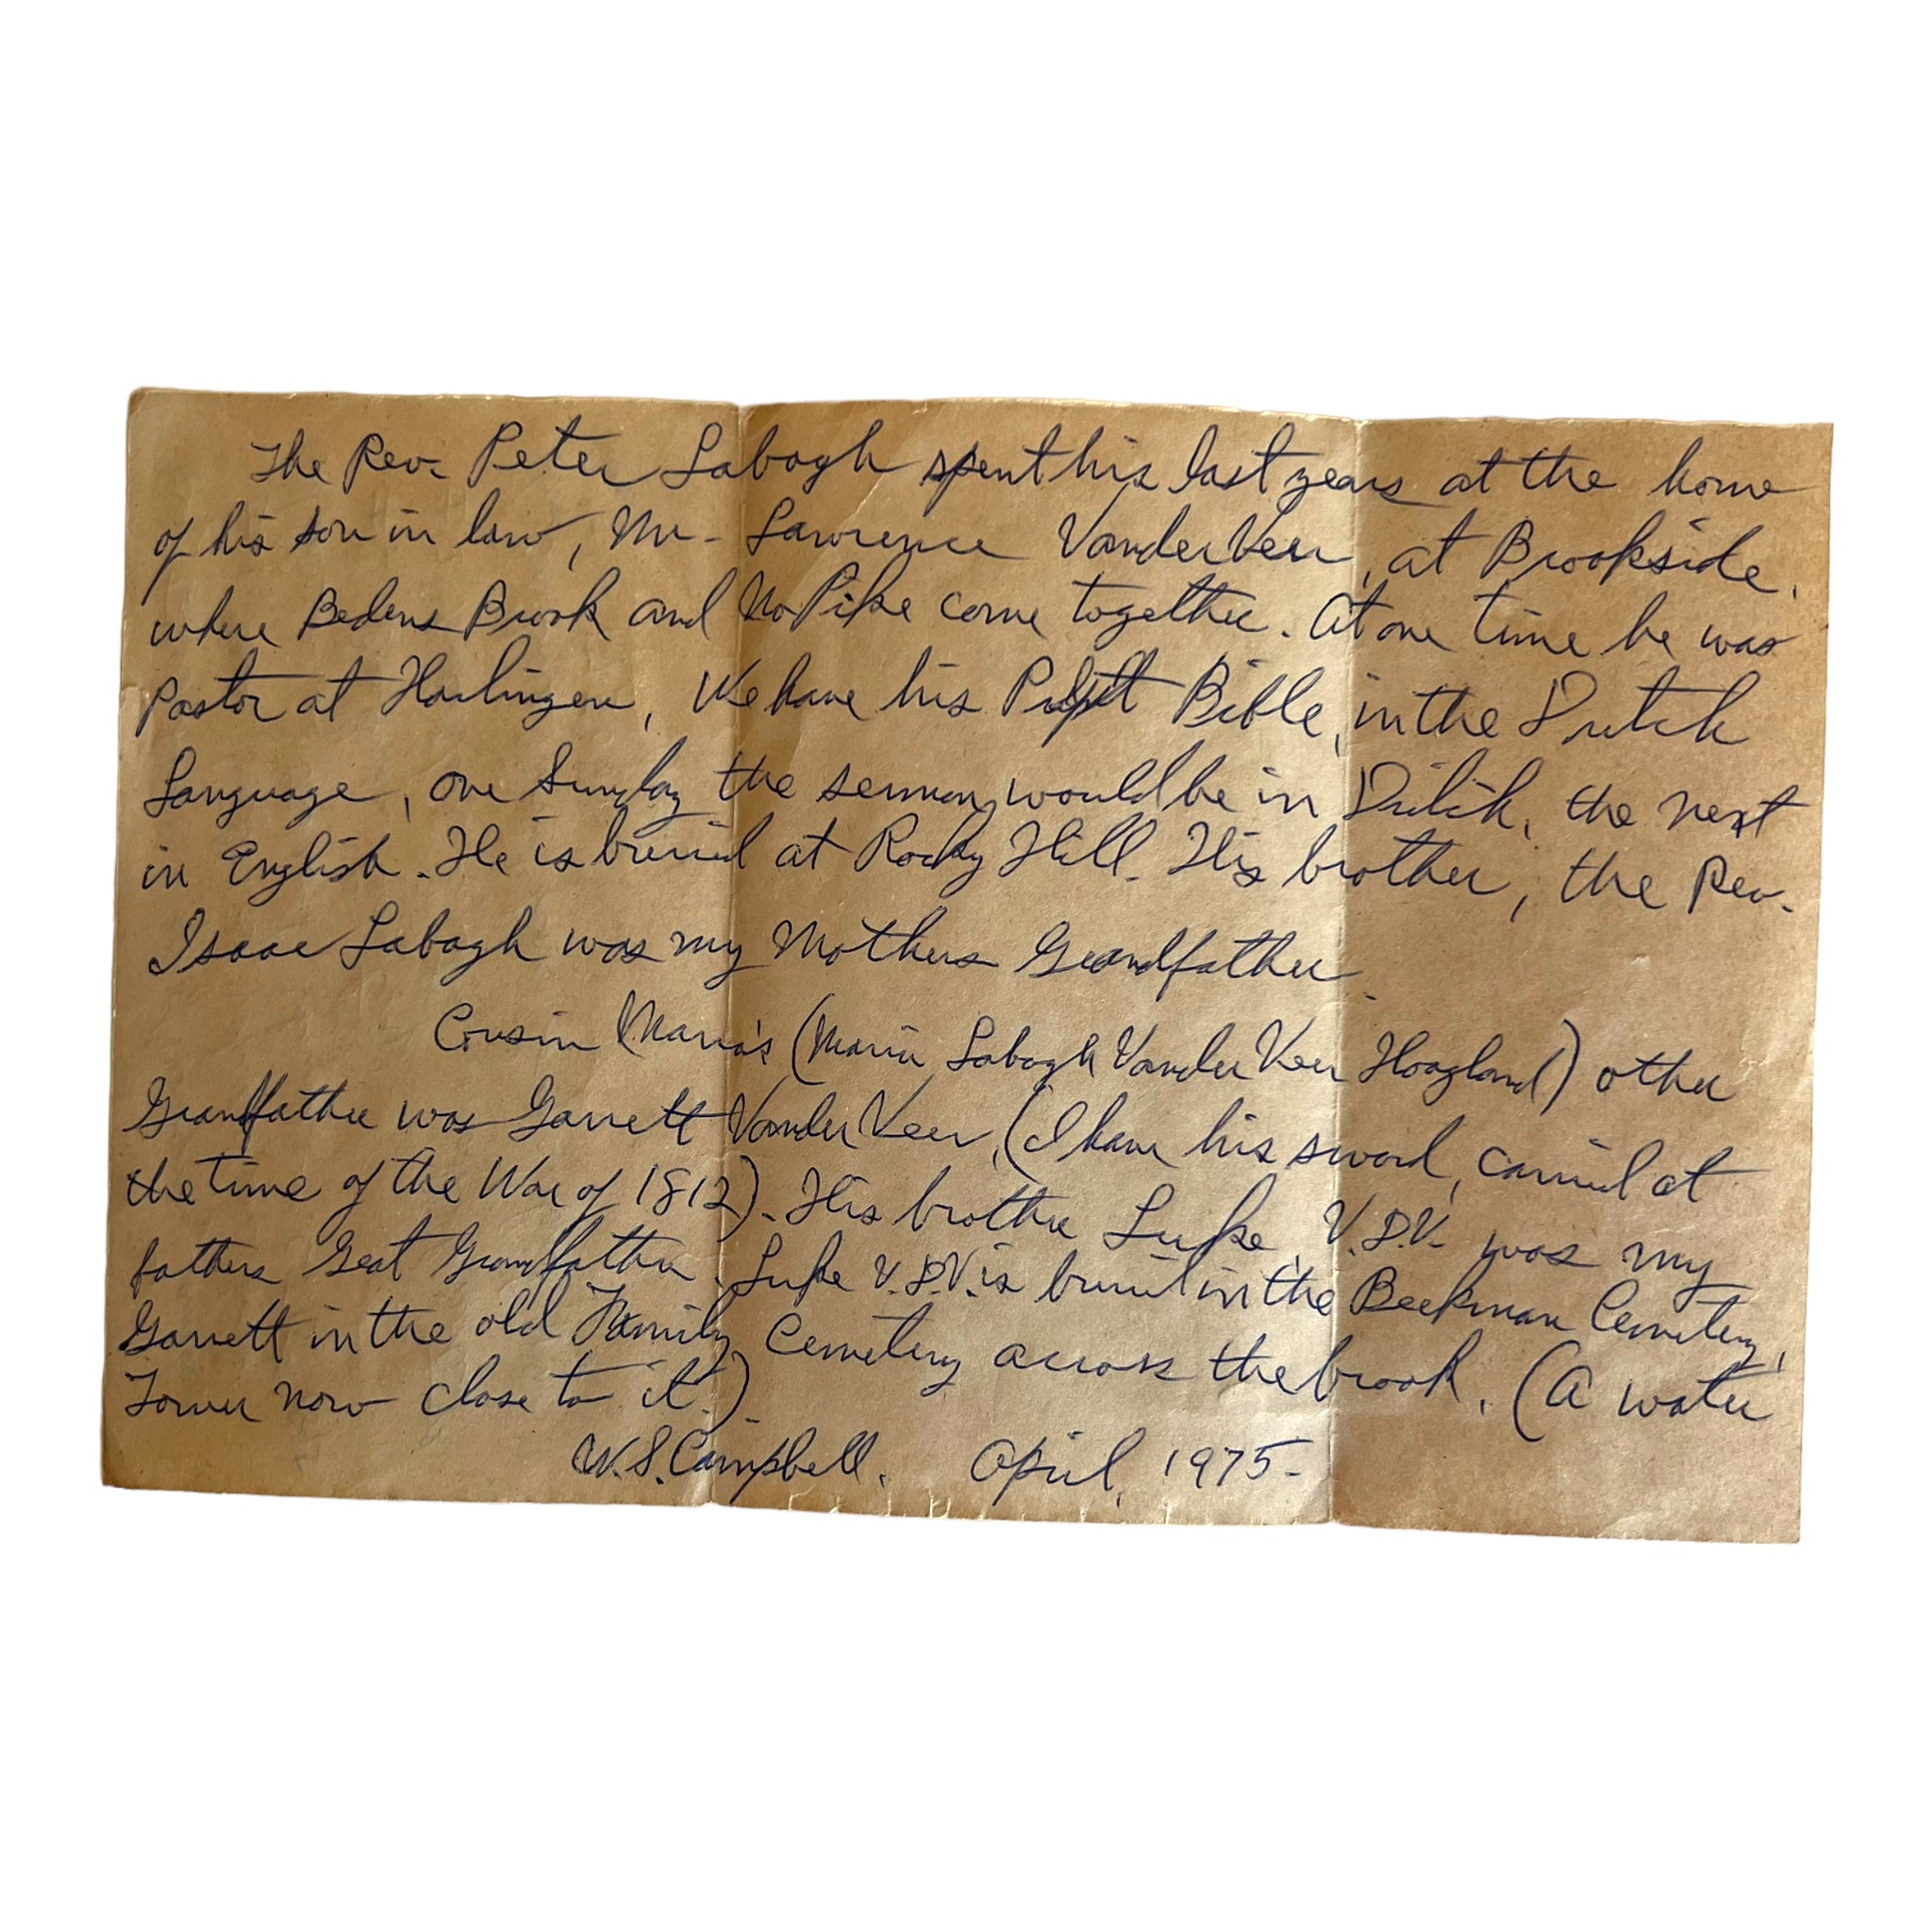 The Rev. Peter Labagh spent his last years at the home
of his son in law, Mr. Lawrence VanderVeer, at Brookside,
where Bedens Brook and Pike come together. At one time he was
Pastor at Harlingen, We have his Pulpit Bible, in the Dutch
Language, one Sunday the sermon would be in Dutch, the next
in English. He is buried at Rocky Hill. His brother, the Rev.
Isaac Labagh was my Mothers Grandfather.
Cousin Maria's (Maria Labagh VanderVeer Hoagland) other
Grandfather was Garrett VanderVeer, (I have his sword, carried at
the time of the War of 1812). His brother Luke, V.D.V. was my
fathers Great Grandfather. Luke V.D.V. is buried in the Beekman Cemetery,
Garrett in the old Family Cemetery across the brook. (A water
Tower now close to it.)
W.S. Campbell. April, 1975-